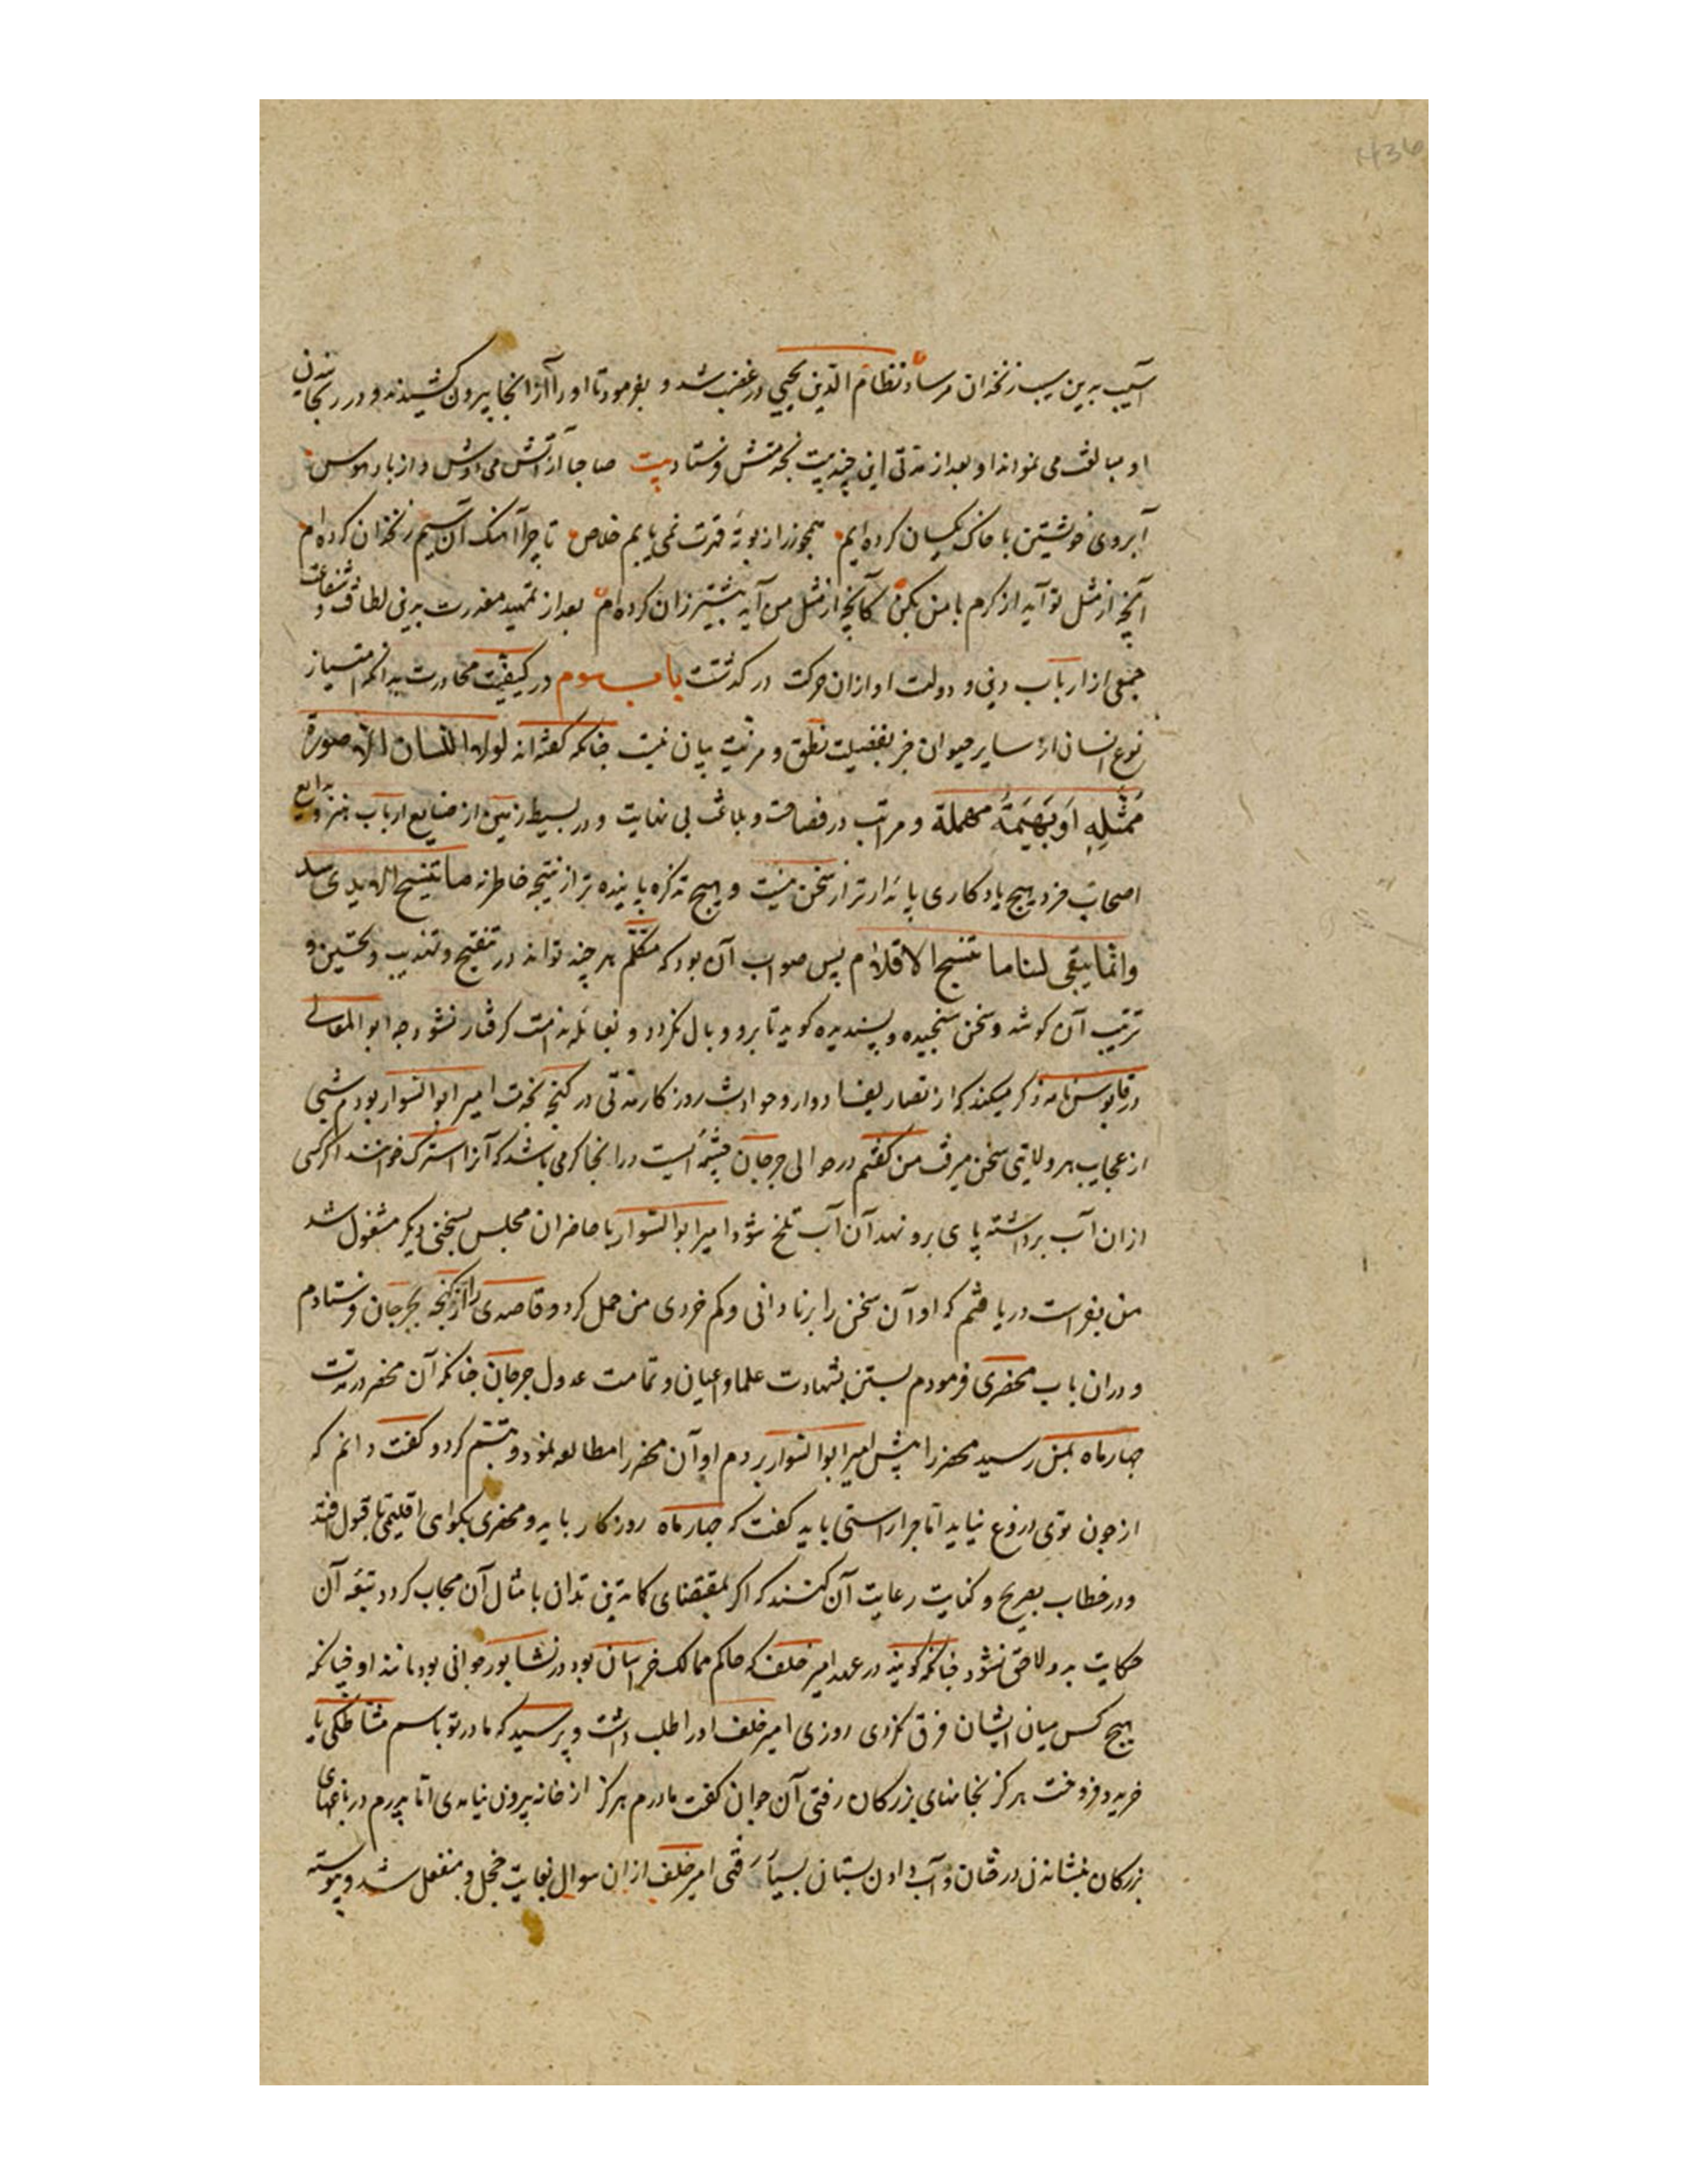 آسیب بدین سیب زنخدان مرساد نظام الدین یحیی در غضب شد و بفرمود تا او را از انجا بیرون کشیدند و در رنجانیدن
او مبالغت می نمودند او بعد از مدتی این چند بیت بخدمتش فرستاد بیت صاحبا از آتش می دوش و از باد هوس
آبروی خویشتن با خاک یکسان کرده ایم همچو زر از بوته قدرت نمی یابم خلاص تا چرا آهنک آن سیم زنخدان کرده ام
آنچه از مثل تو آید از کرم با من بکن کانچه از مثل من آید بیشتر زان کرده ام بعد از تمهید معذرت بدین لطافت و شفاعت
جمعی از ارباب دین و دولت او از ان حرکت در کذشت باب سوم در کیفیت محاورت بدانکه امتیاز
نوع انسان از سایر حیوان جز بفضیلت نطق و مزیت بیان نیست چنانکه کفته اند لولا اللسان الا صورة
ممثلة او بهیمة مهملة و مراتب در فصاحت و بلاغت بی نهایت و در بسیط زمین از صنایع ارباب هنر و بدایع
اصحاب خرد هیچ یادکاری پایدارتر از سخن نیست و هیچ تذکره پاینده تر از نتیجه خاطر نه ما تنسج الایدی یبید
وانما یبقی لنا ما تنسج الاقلام پس صواب آن بود که متکلم هر چند تواند در تنقیح و تهذیب و تحسین و
ترتیب آن کوشد و سخن سنجیده و پسندیده کوید تا برو وبال نکردد و بغائله ندامت کرفتار نشود چه ابو المعالی
در قابوس نامه ذکر میکند که از تصاریف ادوار و حوادث روزکار مدتی در کنجه بخدمت امیر ابو السوار بودم شبی
از عجایب هر ولایتی سخن میرفت من کفتم در حوالی جرجان چشمه ایست در انجا کرمی باشد که آنرا خوانند اکر کسی
از ان آب برداشته پای برو نهد آن آب تلخ شود امیر ابو السوار با حاضران مجلس بسخنی دیکر مشغول شد
من بفراست دریافتم که او آن سخن را برنادانی و کم خردی من حمل کرد و قاصدی را از کنجه بجرجان فرستادم
و دران باب محضری فرمودم بستن بشهادت علما و اعیان و تمامت عدول جرجان چنانکه آن محضر در مدت
چهار ماه بمن رسید محضر را پیش امیر ابو السوار بردم او آن محضر را مطالعه نمود و تبسم کرد و کفت دانم که
از چون توی دروغ نیاید اما چرا راستی باید کفت که چهار ماه روزکار باید و محضری بکواهی اقلیمی تا قبول افتد
و در خطاب بصریح و کنایت رعایت آن کنند که اکر بمقتضای کما تدین تدان بامثال آن مجاب کردد تبعه آن
حکایت بدو لاحق نشود چنانکه کویند در عهد امیر خلف که حاکم ممالک خراسان بود در نشابور جوانی بود مانند او چنانکه
هیچ کس میان ایشان فرق نکردی روزی امیر خلف او را طلب داشت و پرسید که مادر تو باسم مشاطکی یا
خرید و فروخت هرکز بخانهای بزرکان رفتی آن جوان کفت مادرم هرکز از خانه بیرون نیامدی اما پدرم در باغهای
بزرکان بنشاندن درختان و آب دادن بستان بسیار رفتی امیر خلف ازان سوال بغایت خجل و منفعل شد و پیوسته